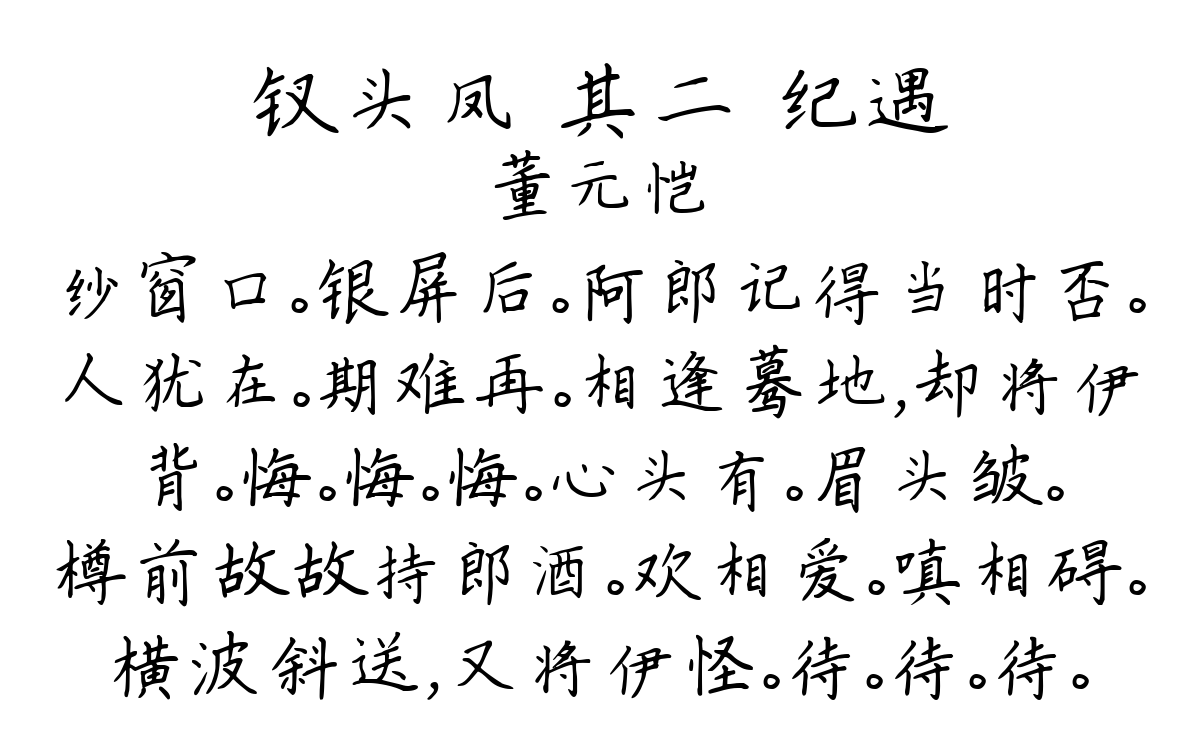 钗头凤 其二 纪遇
董元恺
纱窗口。银屏后。阿郎记得当时否。
人犹在。期难再。相逢蓦地,却将伊
背。悔。悔。悔。心头有。眉头皱。
樽前故故持郎酒。欢相爱。嗔相碍。
横波斜送,又将伊怪。待。待。待。